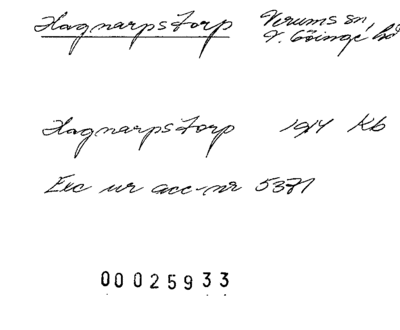 Hagnarpstorp Verums sn,
V. Göinge hd
Hagnarpstorp 1914 Kb
Exc ur acc-nr 5371
00025933